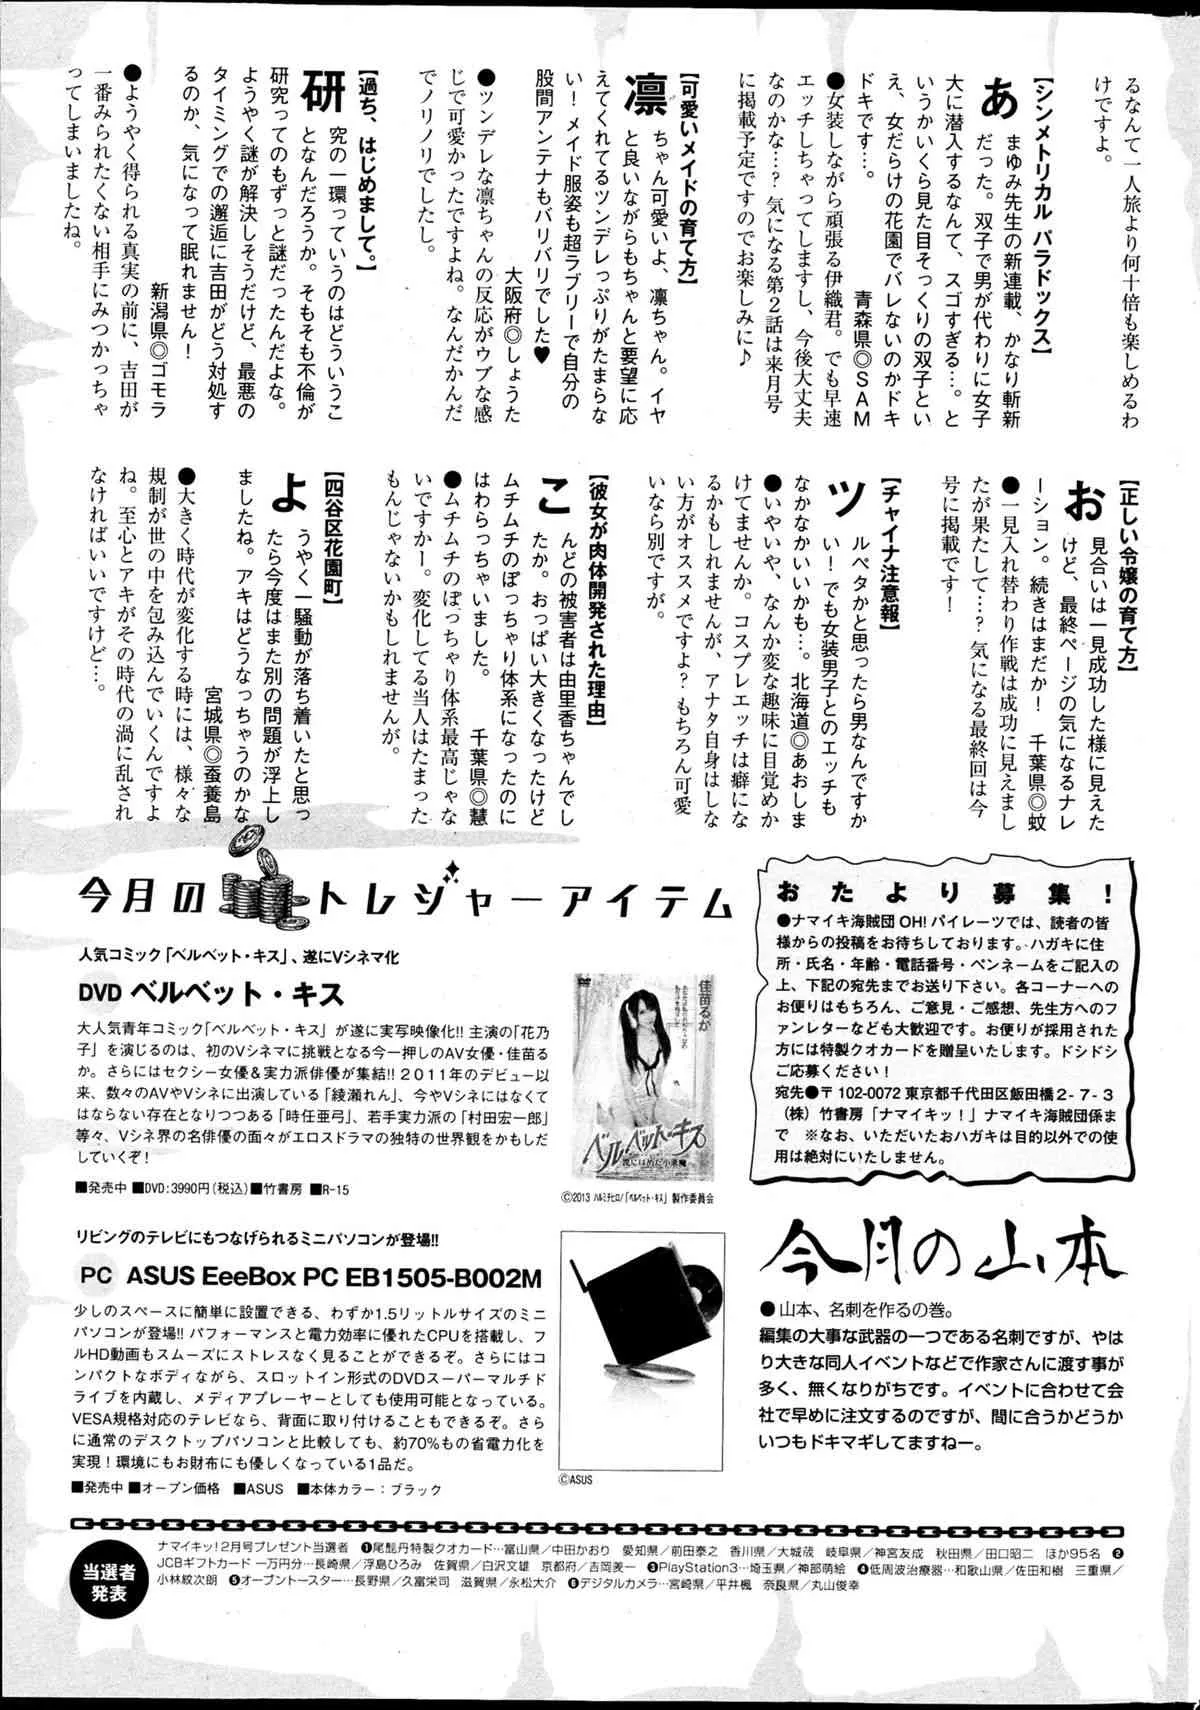 るなんて一人旅より何十倍も楽しめるわ
けですよ。
【シンメトリカル パラドックス】
あまゆみ先生の新連載、かなり斬新
だった。双子で男が代わりに女子
大に潜入するなんて、スゴすぎる…。と
いうかいくら見た目そっくりの双子とい
え、女だらけの花園でバレないのかドキ
ドキです…。 青森県◎SAM
●女装しながら頑張る伊織君。でも早速
エッチしちゃってしますし、今後大丈夫
なのかな…？気になる第2話は来月号
に掲載予定ですのでお楽しみに♪
【可愛いメイドの育て方】
凛ちゃん可愛いよ、凛ちゃん。イヤ
と良いながらもちゃんと要望に応
えてくれてるツンデレっぷりがたまらな
い！メイド服姿も超ラブリーで自分の
股間アンテナもバリバリでした♥
大阪府◎しょうた
●ツンデレな凛ちゃんの反応がウブな感
じで可愛かったですよね。なんだかんだ
でノリノリでしたし。
【過ち、はじめまして。】
研究の一環っていうのはどういうこ
となんだろうか。そもそも不倫が
研究ってのもずっと謎だったんだよな。
ようやく謎が解決しそうだけど、最悪の
タイミングでの邂逅に吉田がどう対処す
るのか、気になって眠れません！
新潟県◎ゴモラ
●ようやく得られる真実の前に、吉田が
一番みられたくない相手にみつかっちゃ
ってしまいましたね。
【正しい令嬢の育て方】
お見合いは一見成功した様に見えた
けど、最終ページの気になるナレ
ーション。続きはまだか！ 千葉県◎蚊
●一見入れ替わり作戦は成功に見えまし
たが果たして…？気になる最終回は今
号に掲載です！
【チャイナ注意報】
ツルペタかと思ったら男なんですか
い！でも女装男子とのエッチも
なかなかいいかも…。北海道◎あおしま
●いやいや、なんか変な趣味に目覚めか
けてませんか。コスプレエッチは癖にな
るかもしれませんが、アナタ自身はしな
い方がオススメですよ？もちろん可愛
いなら別ですが。
【彼女が肉体開発された理由】
こんどの被害者は由里香ちゃんでし
たか。おっぱい大きくなったけど
ムチムチのぽっちゃり体系になったのに
はわらっちゃいました。 千葉県◎慧
●ムチムチのぽっちゃり体系最高じゃな
いですかー。変化してる当人はたまった
もんじゃないかもしれませんが。
【四谷区花園町】
ようやく一騒動が落ち着いたと思っ
たら今度はまた別の問題が浮上し
ましたね。アキはどうなっちゃうのかな
宮城県◎蚕養島
●大きく時代が変化する時には、様々な
規制が世の中を包み込んでいくんですよ
ね。至心とアキがその時代の渦に乱され
なければいいですけど…。
今月のトレジャーアイテム
人気コミック「ベルベット・キス」、遂にVシネマ化
DVD ベルベット・キス
大人気青年コミック「ベルベット・キス」が遂に実写映像化!! 主演の「花乃
子」を演じるのは、初のVシネマに挑戦となる今一押しのAV女優・佳苗る
か。さらにはセクシー女優＆実力派俳優が集結!! 2011年のデビュー以
来、数々のAVやVシネに出演している「綾瀬れん」、今やVシネにはなくて
はならない存在となりつつある「時任亜弓」、若手実力派の「村田宏一郎」
等々、Vシネ界の名俳優の面々がエロスドラマの独特の世界観をかもしだ
していくぞ！
■発売中 ■DVD:3990円(税込) ■竹書房 ■R-15
佳苗るか
ベルベット・キス
©2013 ハルミチヒロ/「ベルベット・キス」製作委員会
リビングのテレビにもつなげられるミニパソコンが登場!!
PC ASUS EeeBox PC EB1505-B002M
少しのスペースに簡単に設置できる、わずか1.5リットルサイズのミニ
パソコンが登場!! パフォーマンスと電力効率に優れたCPUを搭載し、フ
ルHD動画もスムーズにストレスなく見ることができるぞ。さらにはコ
ンパクトなボディながら、スロットイン形式のDVDスーパーマルチド
ライブを内蔵し、メディアプレーヤーとしても使用可能となっている。
VESA規格対応のテレビなら、背面に取り付けることもできるぞ。さら
に通常のデスクトップパソコンと比較しても、約70%もの省電力化を
実現！環境にもお財布にも優しくなっている1品だ。
■発売中 ■オープン価格 ■ASUS ■本体カラー：ブラック
©ASUS
おたより募集！
●ナマイキ海賊団 OH! パイレーツでは、読者の皆
様からの投稿をお待ちしております。ハガキに住
所・氏名・年齢・電話番号・ペンネームをご記入の
上、下記の宛先までお送り下さい。各コーナーへの
お便りはもちろん、ご意見・ご感想、先生方へのフ
ァンレターなども大歓迎です。お便りが採用された
方には特製クオカードを贈呈いたします。ドシドシ
ご応募ください！
宛先●〒102-0072 東京都千代田区飯田橋2-7-3
（株）竹書房「ナマイキッ！」ナマイキ海賊団係ま
で ※なお、いただいたおハガキは目的以外での使
用は絶対にいたしません。
今月の山本
●山本、名刺を作るの巻。
編集の大事な武器の一つである名刺ですが、やは
り大きな同人イベントなどで作家さんに渡す事が
多く、無くなりがちです。イベントに合わせて会
社で早めに注文するのですが、間に合うかどうか
いつもドキマギしてますねー。
当選者
発表
ナマイキッ！2月号プレゼント当選者 ❶尾髭丹特製クオカード…富山県／中田かおり 愛知県／前田泰之 香川県／大城茂 岐阜県／神宮友成 秋田県／田口昭二 ほか95名 ❷
JCBギフトカード 一万円分…長崎県／浮島ひろみ 佐賀県／白沢文雄 京都府／吉岡義一 ❸PlayStation3…埼玉県／神部萌絵 ❹低周波治療器…和歌山県／佐田和樹 三重県／
小林紋次朗 ❺オーブントースター…長野県／久富栄司 滋賀県／永松大介 ❻デジタルカメラ…宮崎県／平井楓 奈良県／丸山俊幸